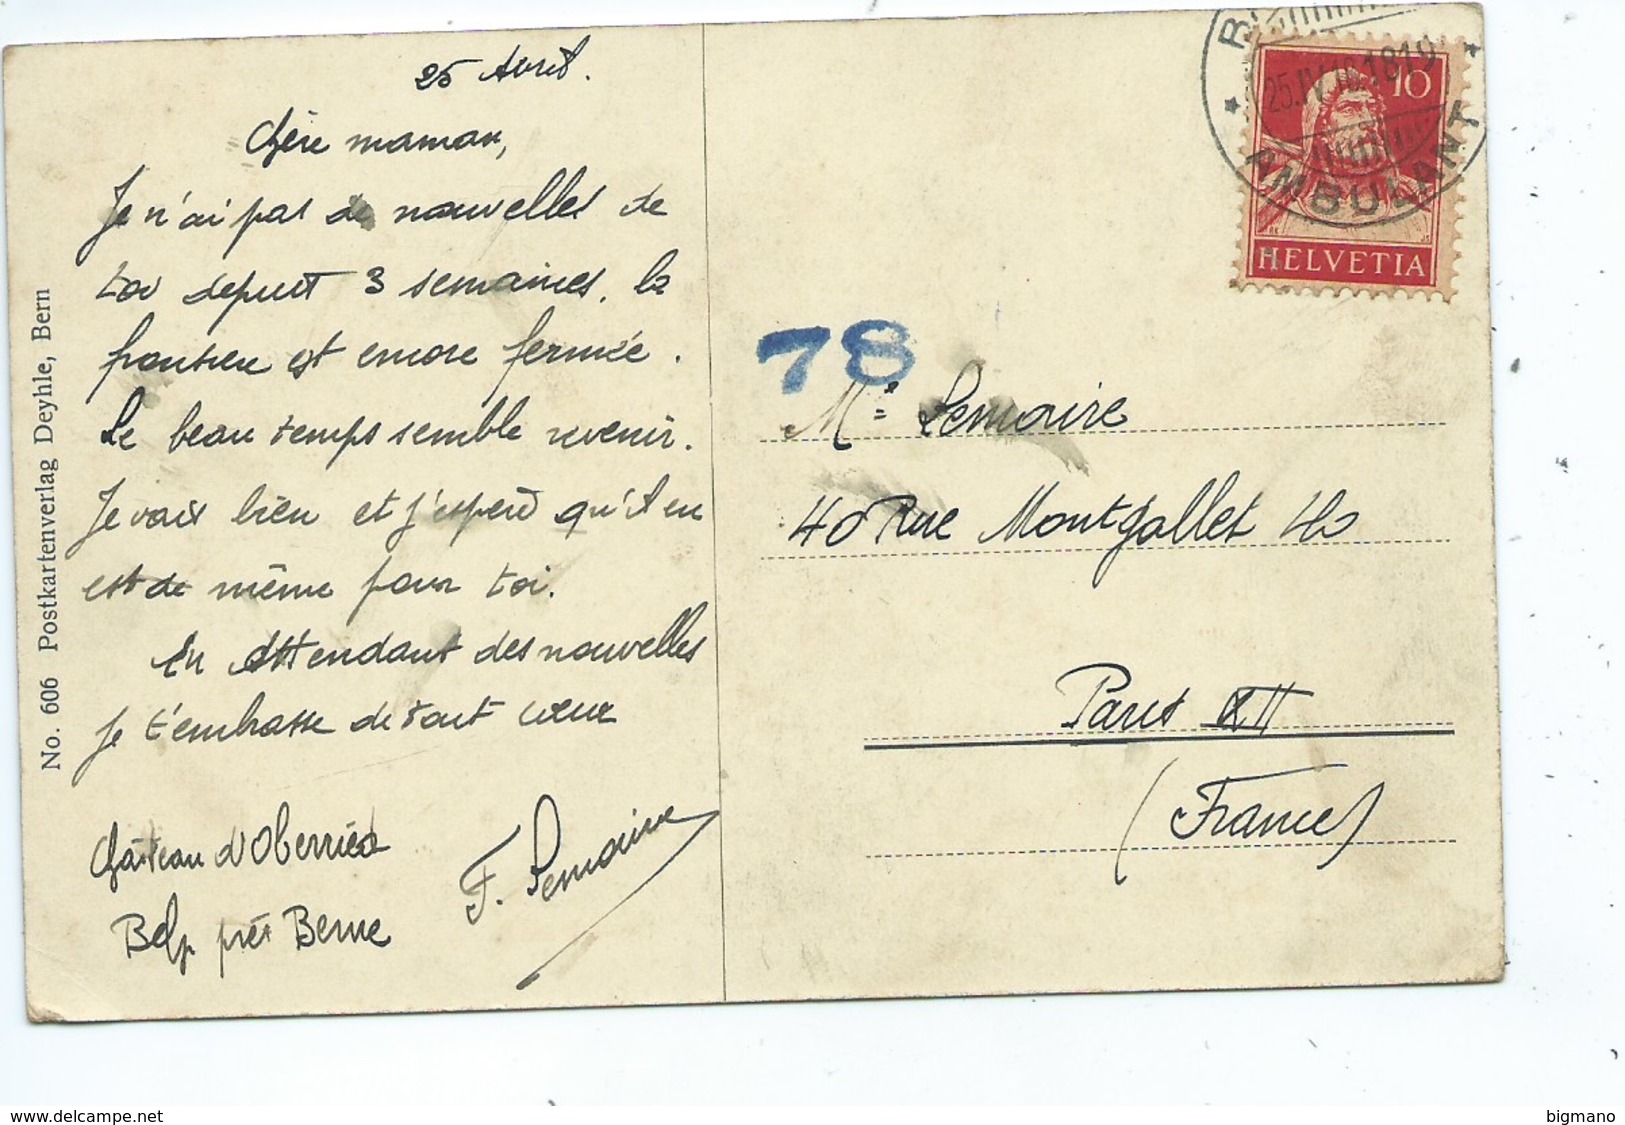 25 Avril.
Chère maman,
Je n'ai pas de nouvelles de
toi depuis 3 semaines. la
frontière est encore fermée.
Le beau temps semble revenir.
Je vais bien et j'espère qu'il en
est de même pour toi.
En attendant des nouvelles
je t'embrasse de tout coeur
Château d'Oberried
Belp près Berne
F. Lemaire
No. 606 Postkartenverlag Deyhle, Bern
78
Me Lemaire
40 Rue Montgallet 40
Paris XII
(France)
AMBULANT
10
HELVETIA
www.delcampe.net
bigmano